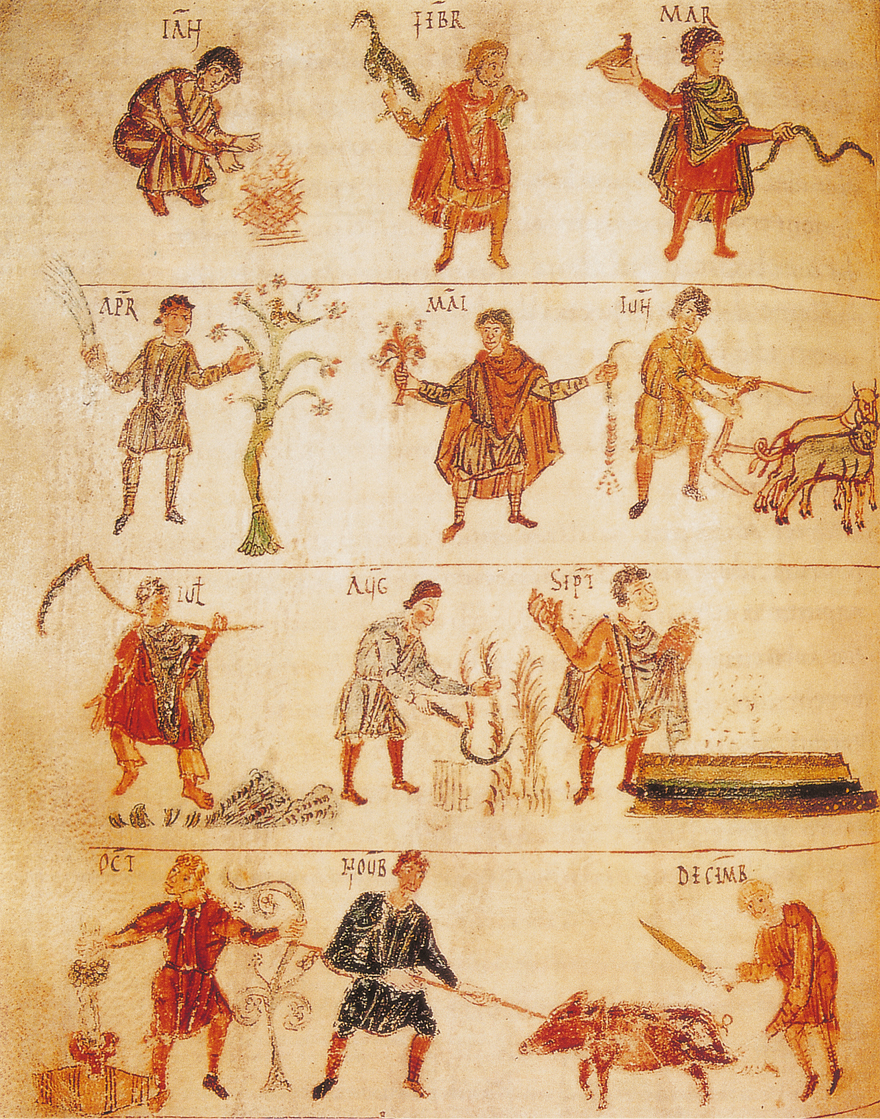 IĀN
FEBR
MAR
APR
MĀI
IUN
IUL
AUG
SEPT
OCT
NOUB
DECEMB